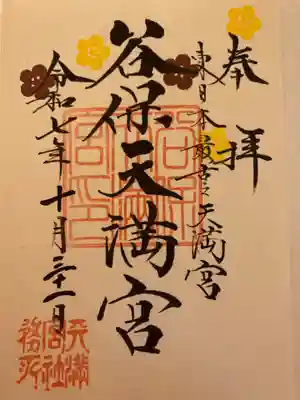 奉拝
東日本最古天満宮
谷保天満宮
令和七年十月三十一日
天満
宮社
務所